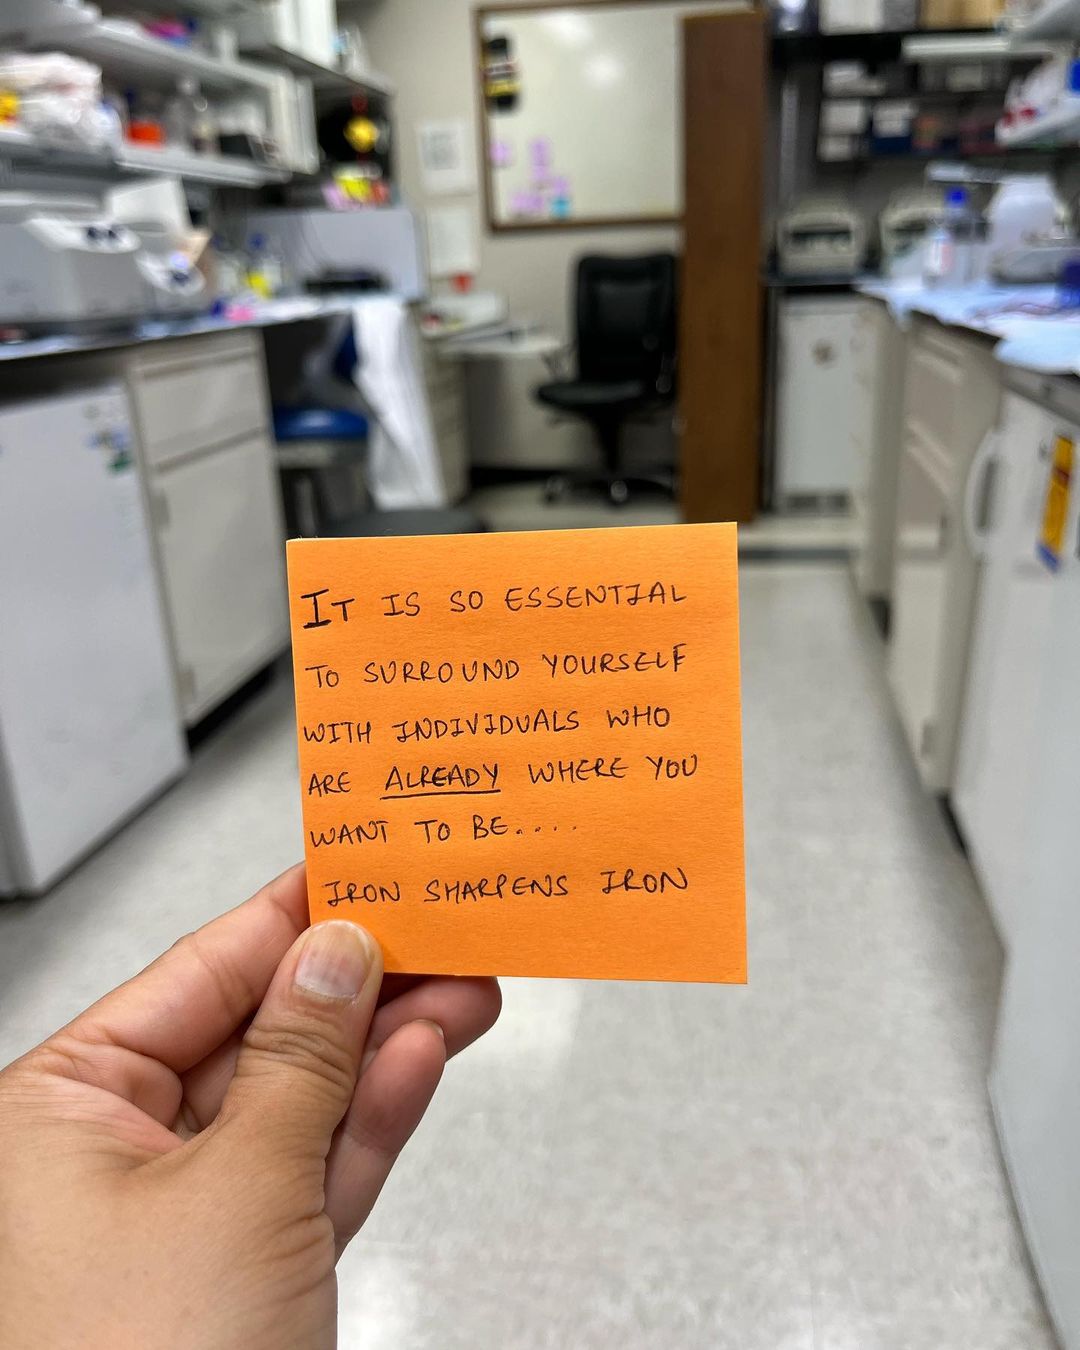 IT IS SO ESSENTIAL
TO SURROUND YOURSELF
WITH INDIVIDUALS WHO
ARE ALREADY WHERE YOU
WANT TO BE....
IRON SHARPENS IRON